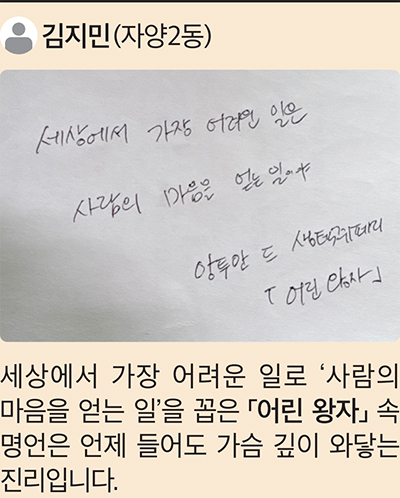 김지민(자양2동)
세상에서 가장 어려운 일은
사람의 마음을 얻는 일이야
앙투안 드 생텍쥐페리
「어린 왕자」
세상에서 가장 어려운 일로 ‘사람의
마음을 얻는 일’을 꼽은 「어린 왕자」 속
명언은 언제 들어도 가슴 깊이 와닿는
진리입니다.